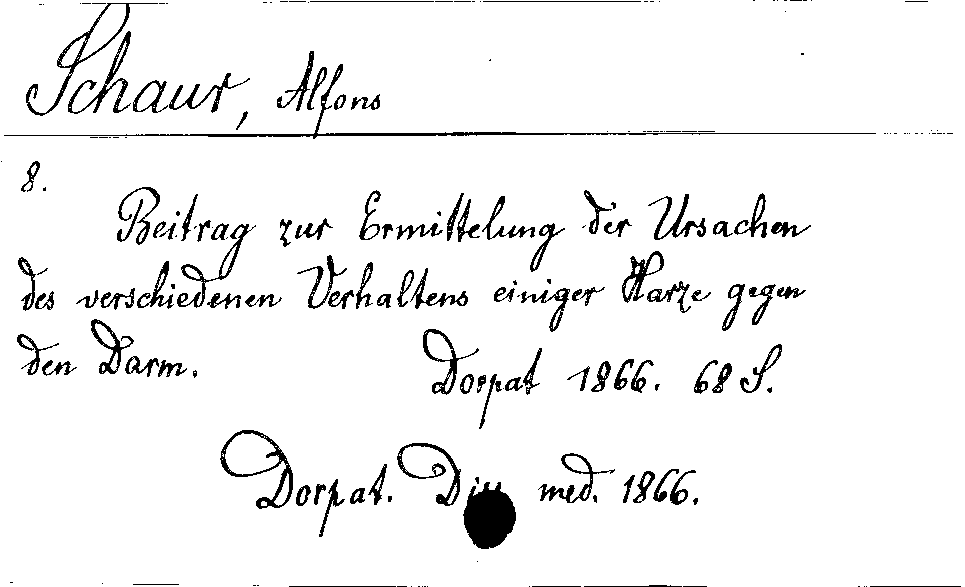 Schaur, Alfons
8.
Beitrag zur Ermittelung der Ursachen
des verschiedenen Verhaltens einiger Harze gegen
den Darm.
Dorpat 1866. 68 S.
Dorpat. Diss med. 1866.